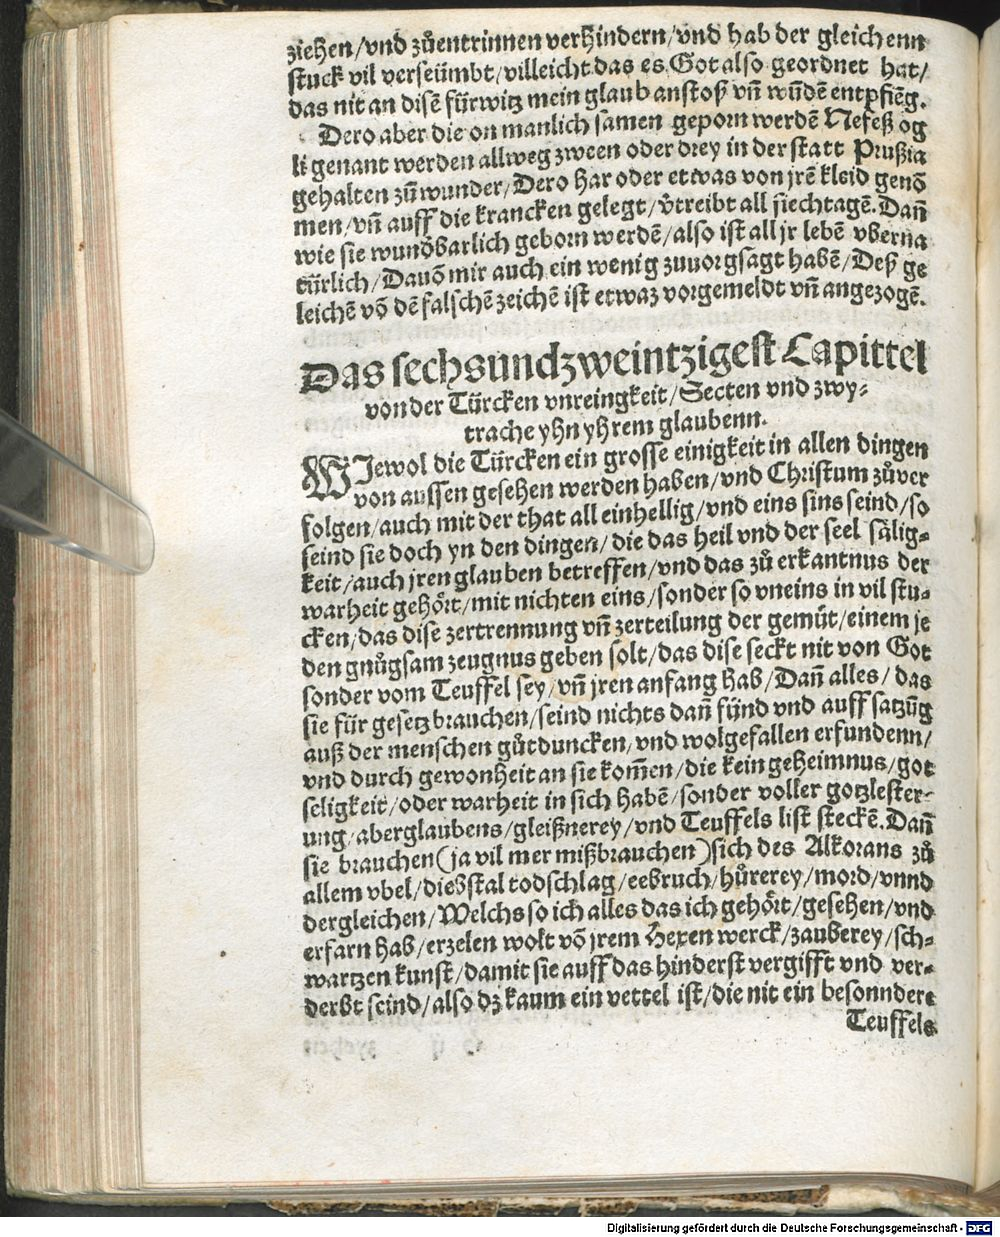 ziehen/vnd zůentrinnen verhindern/vnd hab der gleichenn
stuck vil verseümbt/villeicht das es Got also geordnet hat/
das nit an disē fürwitz mein glaub anstoß vñ wūdē entpfiēg.
Dero aber die on manlich samen geporn werdē Nefeß og
li genant werden allweg zween oder drey in der statt Prußia
gehalten zů wunder/Dero har oder etwas von jrē kleid genō
men/vñ auff die krancken gelegt/v̄treibt all siechtagē. Dañ
wie sie wund̄barlich geborn werdē/also ist all jr lebē vberna
türlich/Dauō mir auch ein wenig zuuorgsagt habē/Deß ge
leichē vō dē falschē zeichē ist etwaz vorgemeldt vñ angezogē.
Das sechsundzweintzigest Capittel
von der Türcken vnreingkeit/Secten vnd zwy⸗
trache yhn yhrem glaubenn.
WJewol die Türcken ein grosse einigkeit in allen dingen
von aussen gesehen werden haben/vnd Christum zůver
folgen/auch mit der that all einhellig/vnd eins sins seind/so
seind sie doch yn den dingen/die das heil vnd der seel sälig⸗
keit/auch jren glauben betreffen/vnd das zů erkantnus der
warheit gehört/mit nichten eins/sonder so vneins in vil stu⸗
cken/das dise zertrennung vñ zerteilung der gemüt/einem je
den gnůgsam zeugnus geben solt/das dise seckt nit von Got
sonder vom Teuffel sey/vñ jren anfang hab/Dañ alles/das
sie für gesetz brauchen/seind nichts dañ fünd vnd auff satzūg
auß der menschen gůtduncken/vnd wolgefallen erfundenn/
vnd durch gewonheit an sie kom̄en/die kein geheimnus/got
seligkeit/oder warheit in sich habē/sonder voller gotzlester⸗
ung/aberglaubens/gleißnerey/vnd Teuffels list steckē. Dañ
sie brauchen(ja vil mer mißbrauchen)sich des Alkorans zů
allem vbel/diebstal todschlag/eebruch/hůrerey/mord/vnnd
dergleichen/Welchs so ich alles das ich gehört/gesehen/vnd
erfarn hab/erzelen wolt vō jrem Hexen werck/zauberey/sch⸗
wartzen kunst/damit sie auff das hinderst vergifft vnd ver⸗
derbt seind/also dz kaum ein vettel ist/die nit ein besonndere
Teuffels
Digitalisierung gefördert durch die Deutsche Forschungsgemeinschaft - DFG